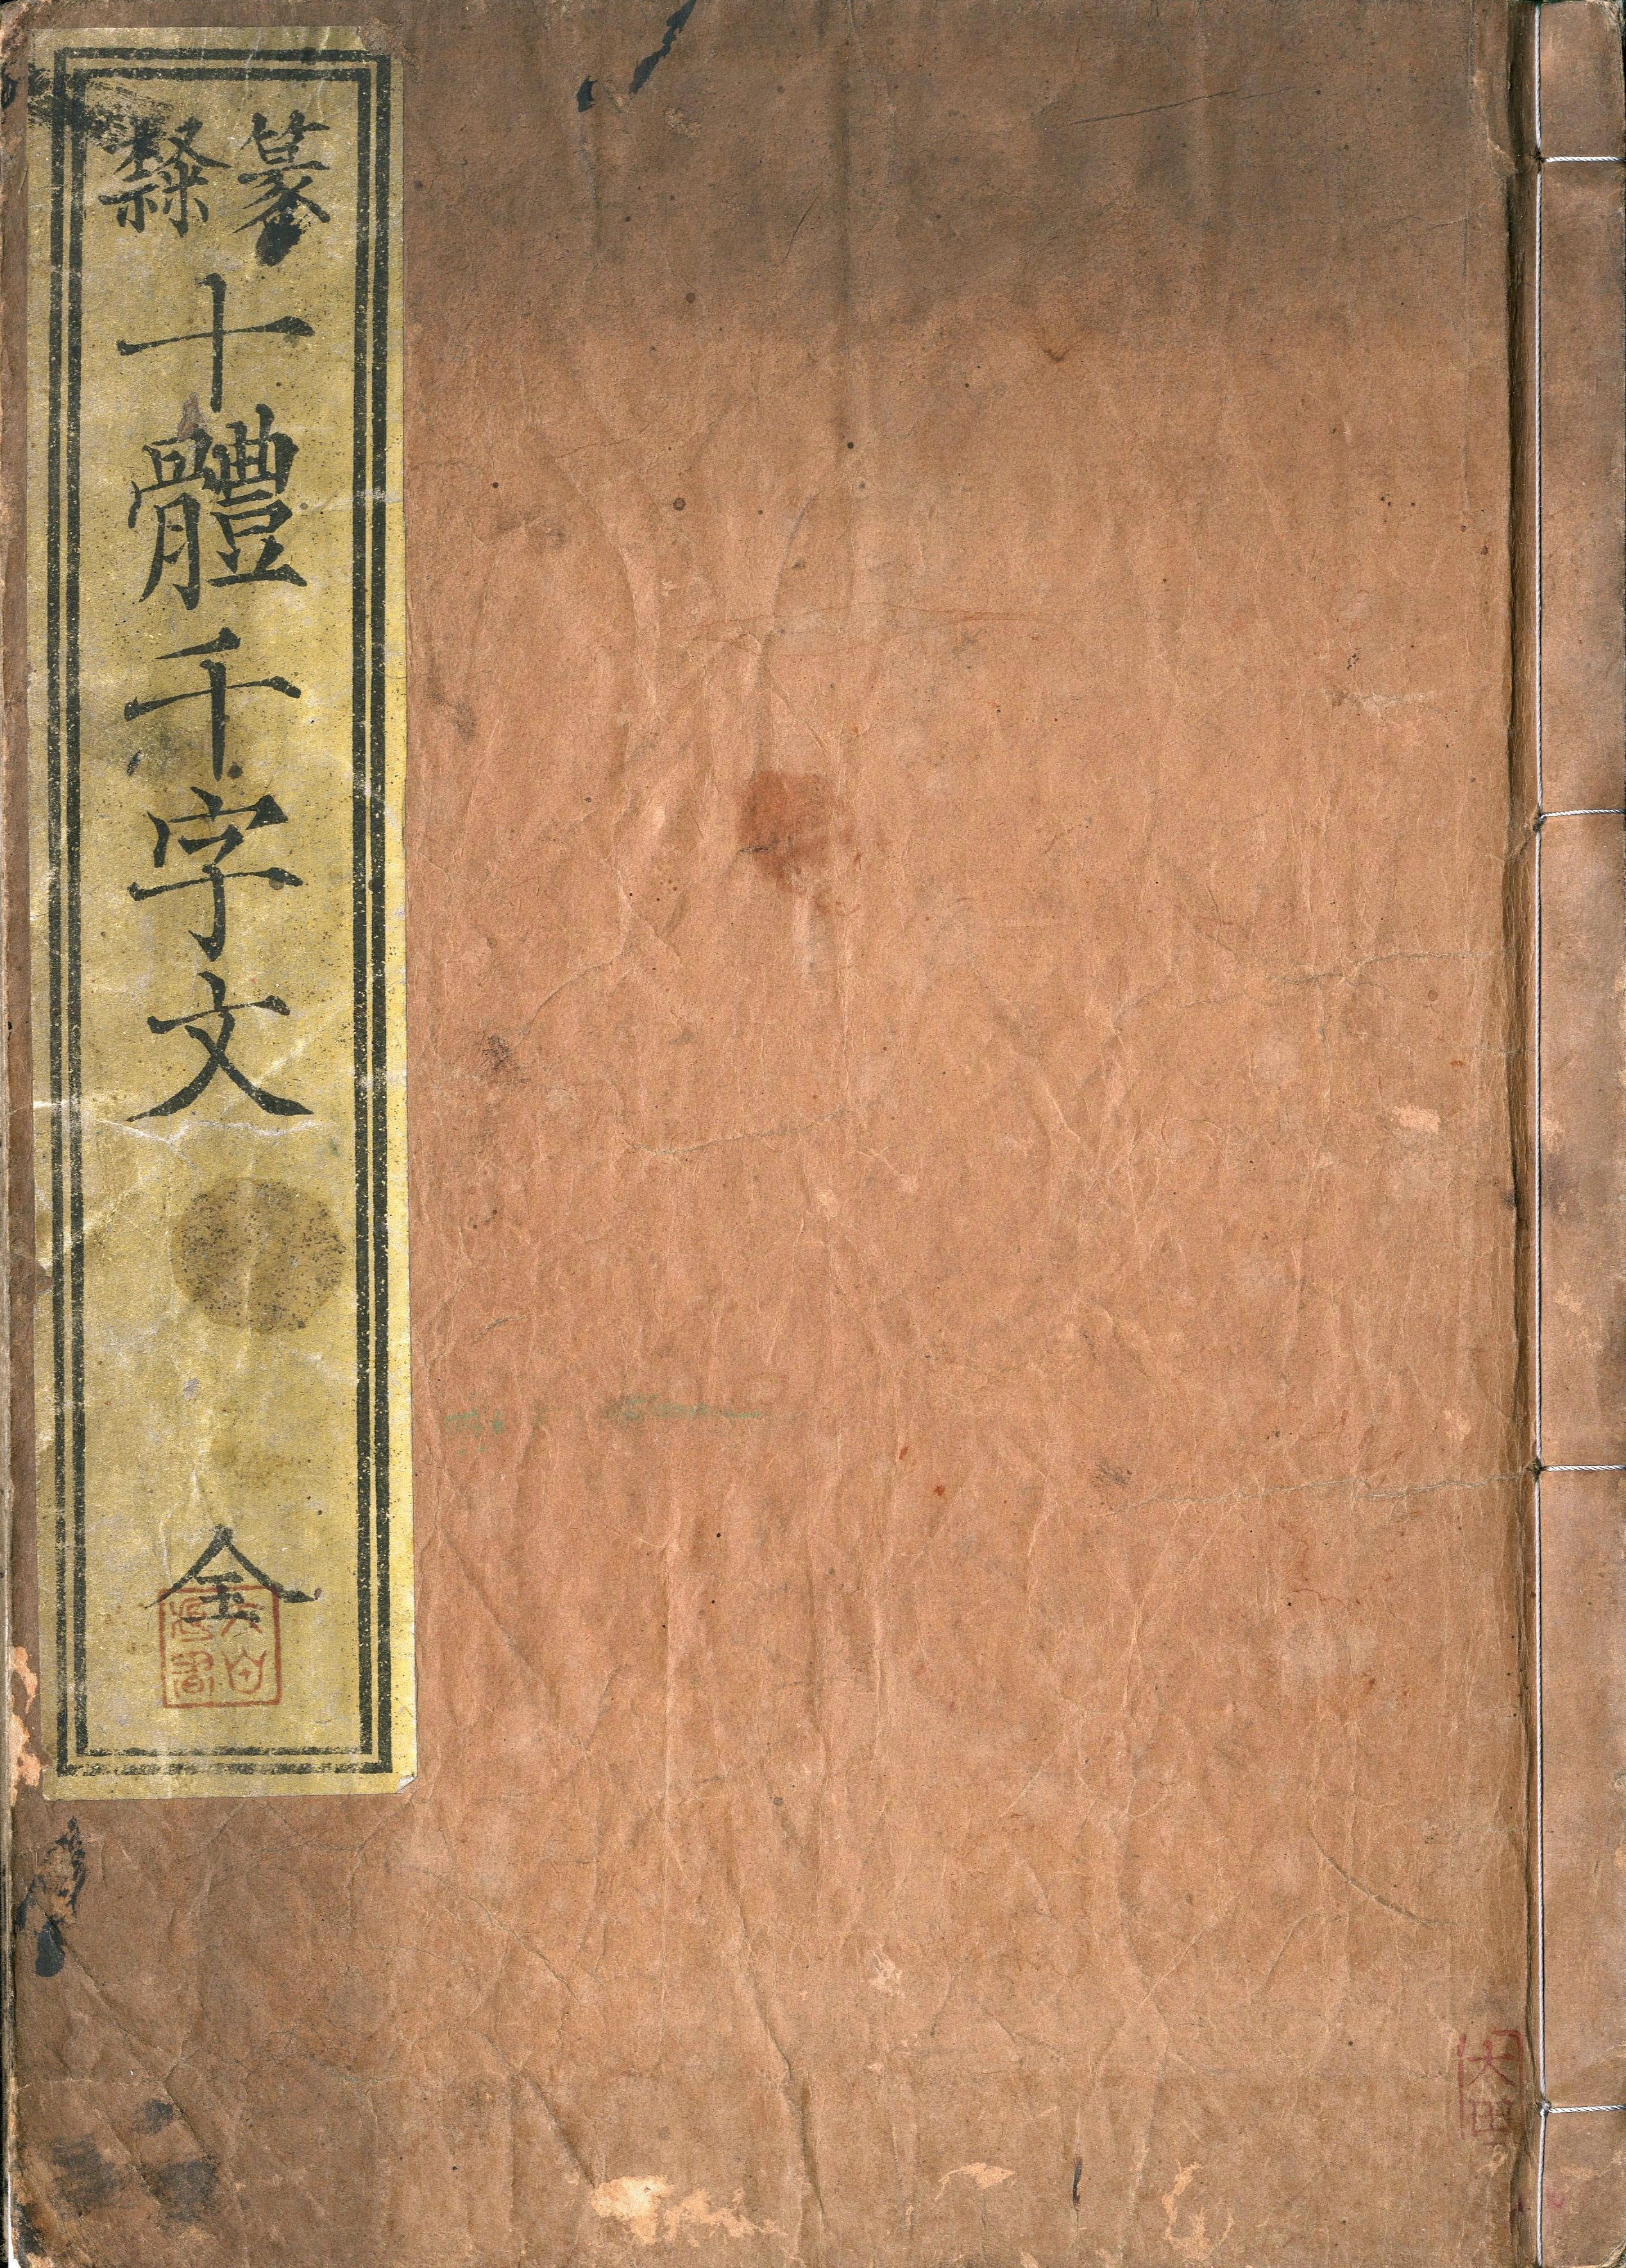 篆隸
十體千字文
全